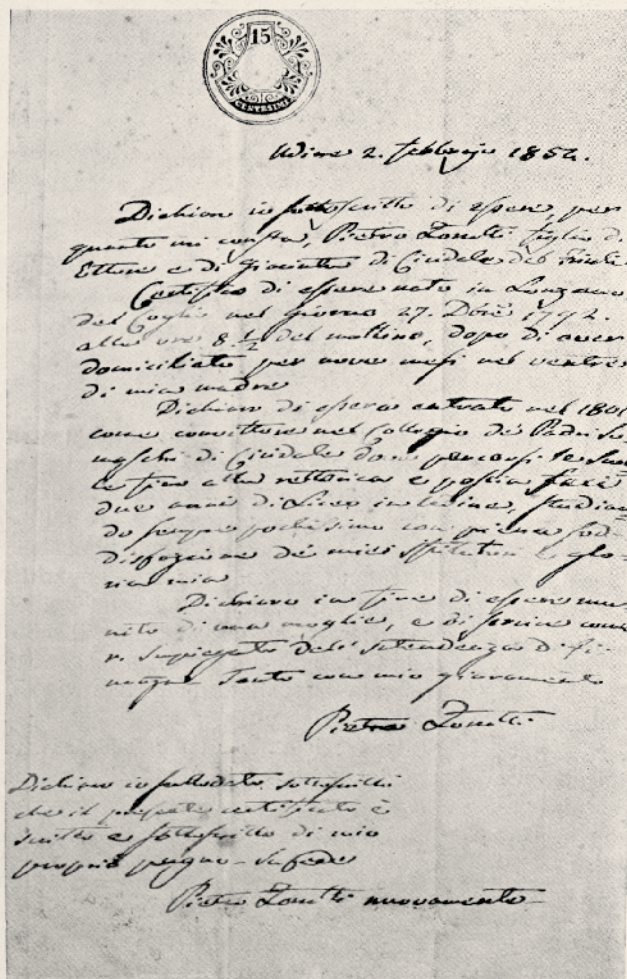 15
CENTESIMI
Udine 2. febbrajo 1852.
Dichiaro io sottoscritto di essere, per
quanto mi consta, Pietro Zorutti figlio di
Ettore e di Giacinta di Cividale del Friuli.
Certifico di essere nato in Lonzano
del Coglio nel giorno 27. Dbre 1792.
alle ore 8 1/2 del mattino, dopo di aver
domiciliato per nove mesi nel ventre
di mia madre
Dichiaro di essere entrato nel 1801
come convittore nel Collegio de' Padri So=
maschi di Cividale dove percorsi le
fino alla rettorica e poscia feci
due anni di Liceo in Udine, studian=
do sempre pochissimo con piena sod=
disfazione de' miei istitutori e glo=
ria mia
Dichiaro in fine di essere mu=
nito di una moglie, e di servire come
r. Impiegato dell' Intendenza di fi=
nanza Tanto con mio giuramento
Pietro Zorutti
Dichiaro io sullodato sottoscritto
che il presente certificato è
scritto e sottoscritto di mio
proprio pugno - In fede
Pietro Zorutti nuovamente